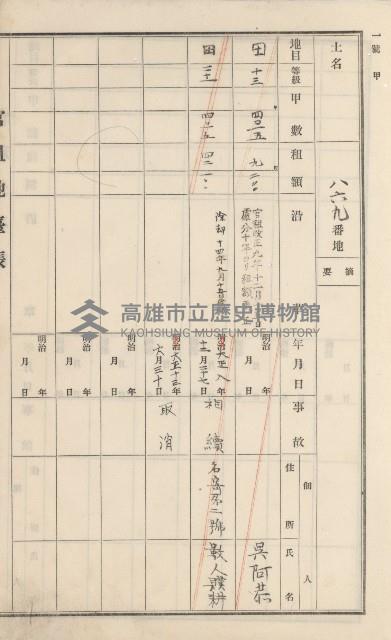 一號 甲
土名
八六九番地
摘要
地目
等級
甲數
租額
沿
年月日
事故
佃人
住所
氏名
田 十三 四〇二五 九二〇
官租改正九年十二月
處分十年ヨリ組額
明治 年 月 日
吳阿恭
田
除却十四年九月十
明治大正八年
十二月三十七日
相續
名寄第二號
數人贌耕
明治大正十三年
六月三十日
取消
明治 年 月 日
明治 年 月 日
明治 年 月 日
官租地臺帳
高雄市立歷史博物館
KAOHSIUNG MUSEUM OF HISTORY